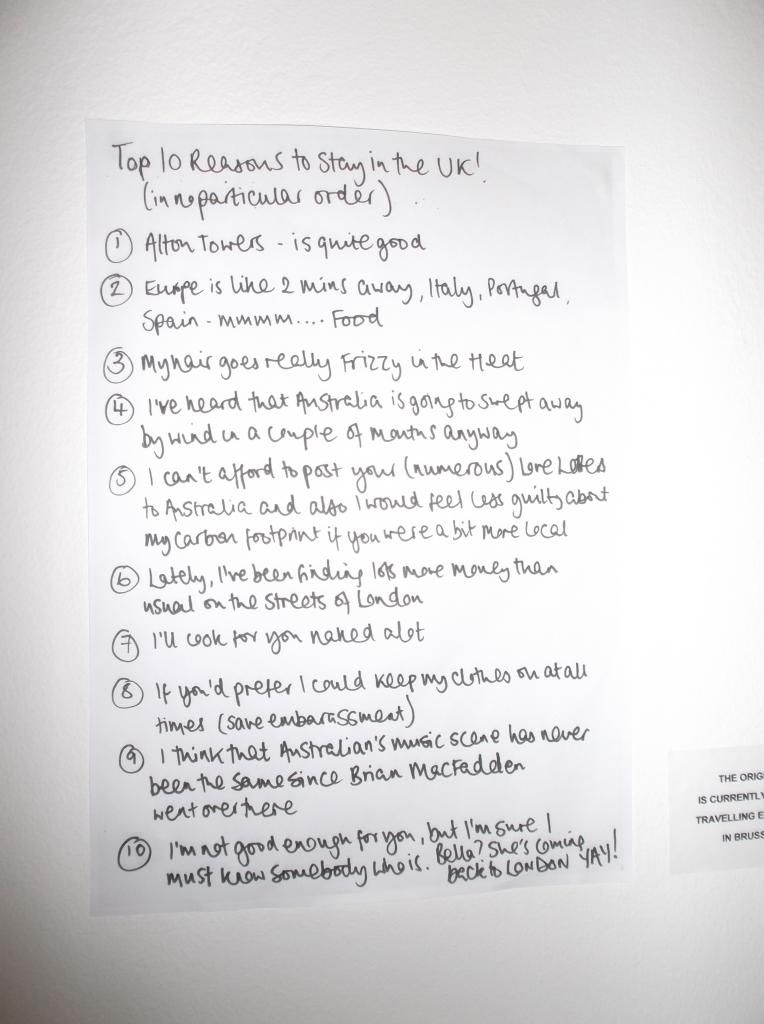 Top 10 Reasons to Stay in the UK!
(in no particular order)
1 Alton Towers - is quite good
2 Europe is like 2 mins away, Italy, Portugal,
Spain - mmmm.... Food
3 My hair goes really Frizzy in the Heat
4 I've heard that Australia is going to swept away
by wind in a couple of months anyway
5 I can't afford to post your (numerous) Love Notes
to Australia and also I would feel less guilty about
my carbon footprint if you were a bit more local
6 Lately, I've been finding lots more money than
usual on the streets of London
7 I'll cook for you naked alot
8 If you'd prefer I could keep my clothes on at all
times (save embarassment)
9 I think that Australian's music scene has never
been the same since Brian MacFadden
went over there
10 I'm not good enough for you, but I'm sure I
must know somebody who is. Bella? She's coming
back to LONDON YAY!
THE ORIG
IS CURRENTLY
TRAVELLING E
IN BRUSS